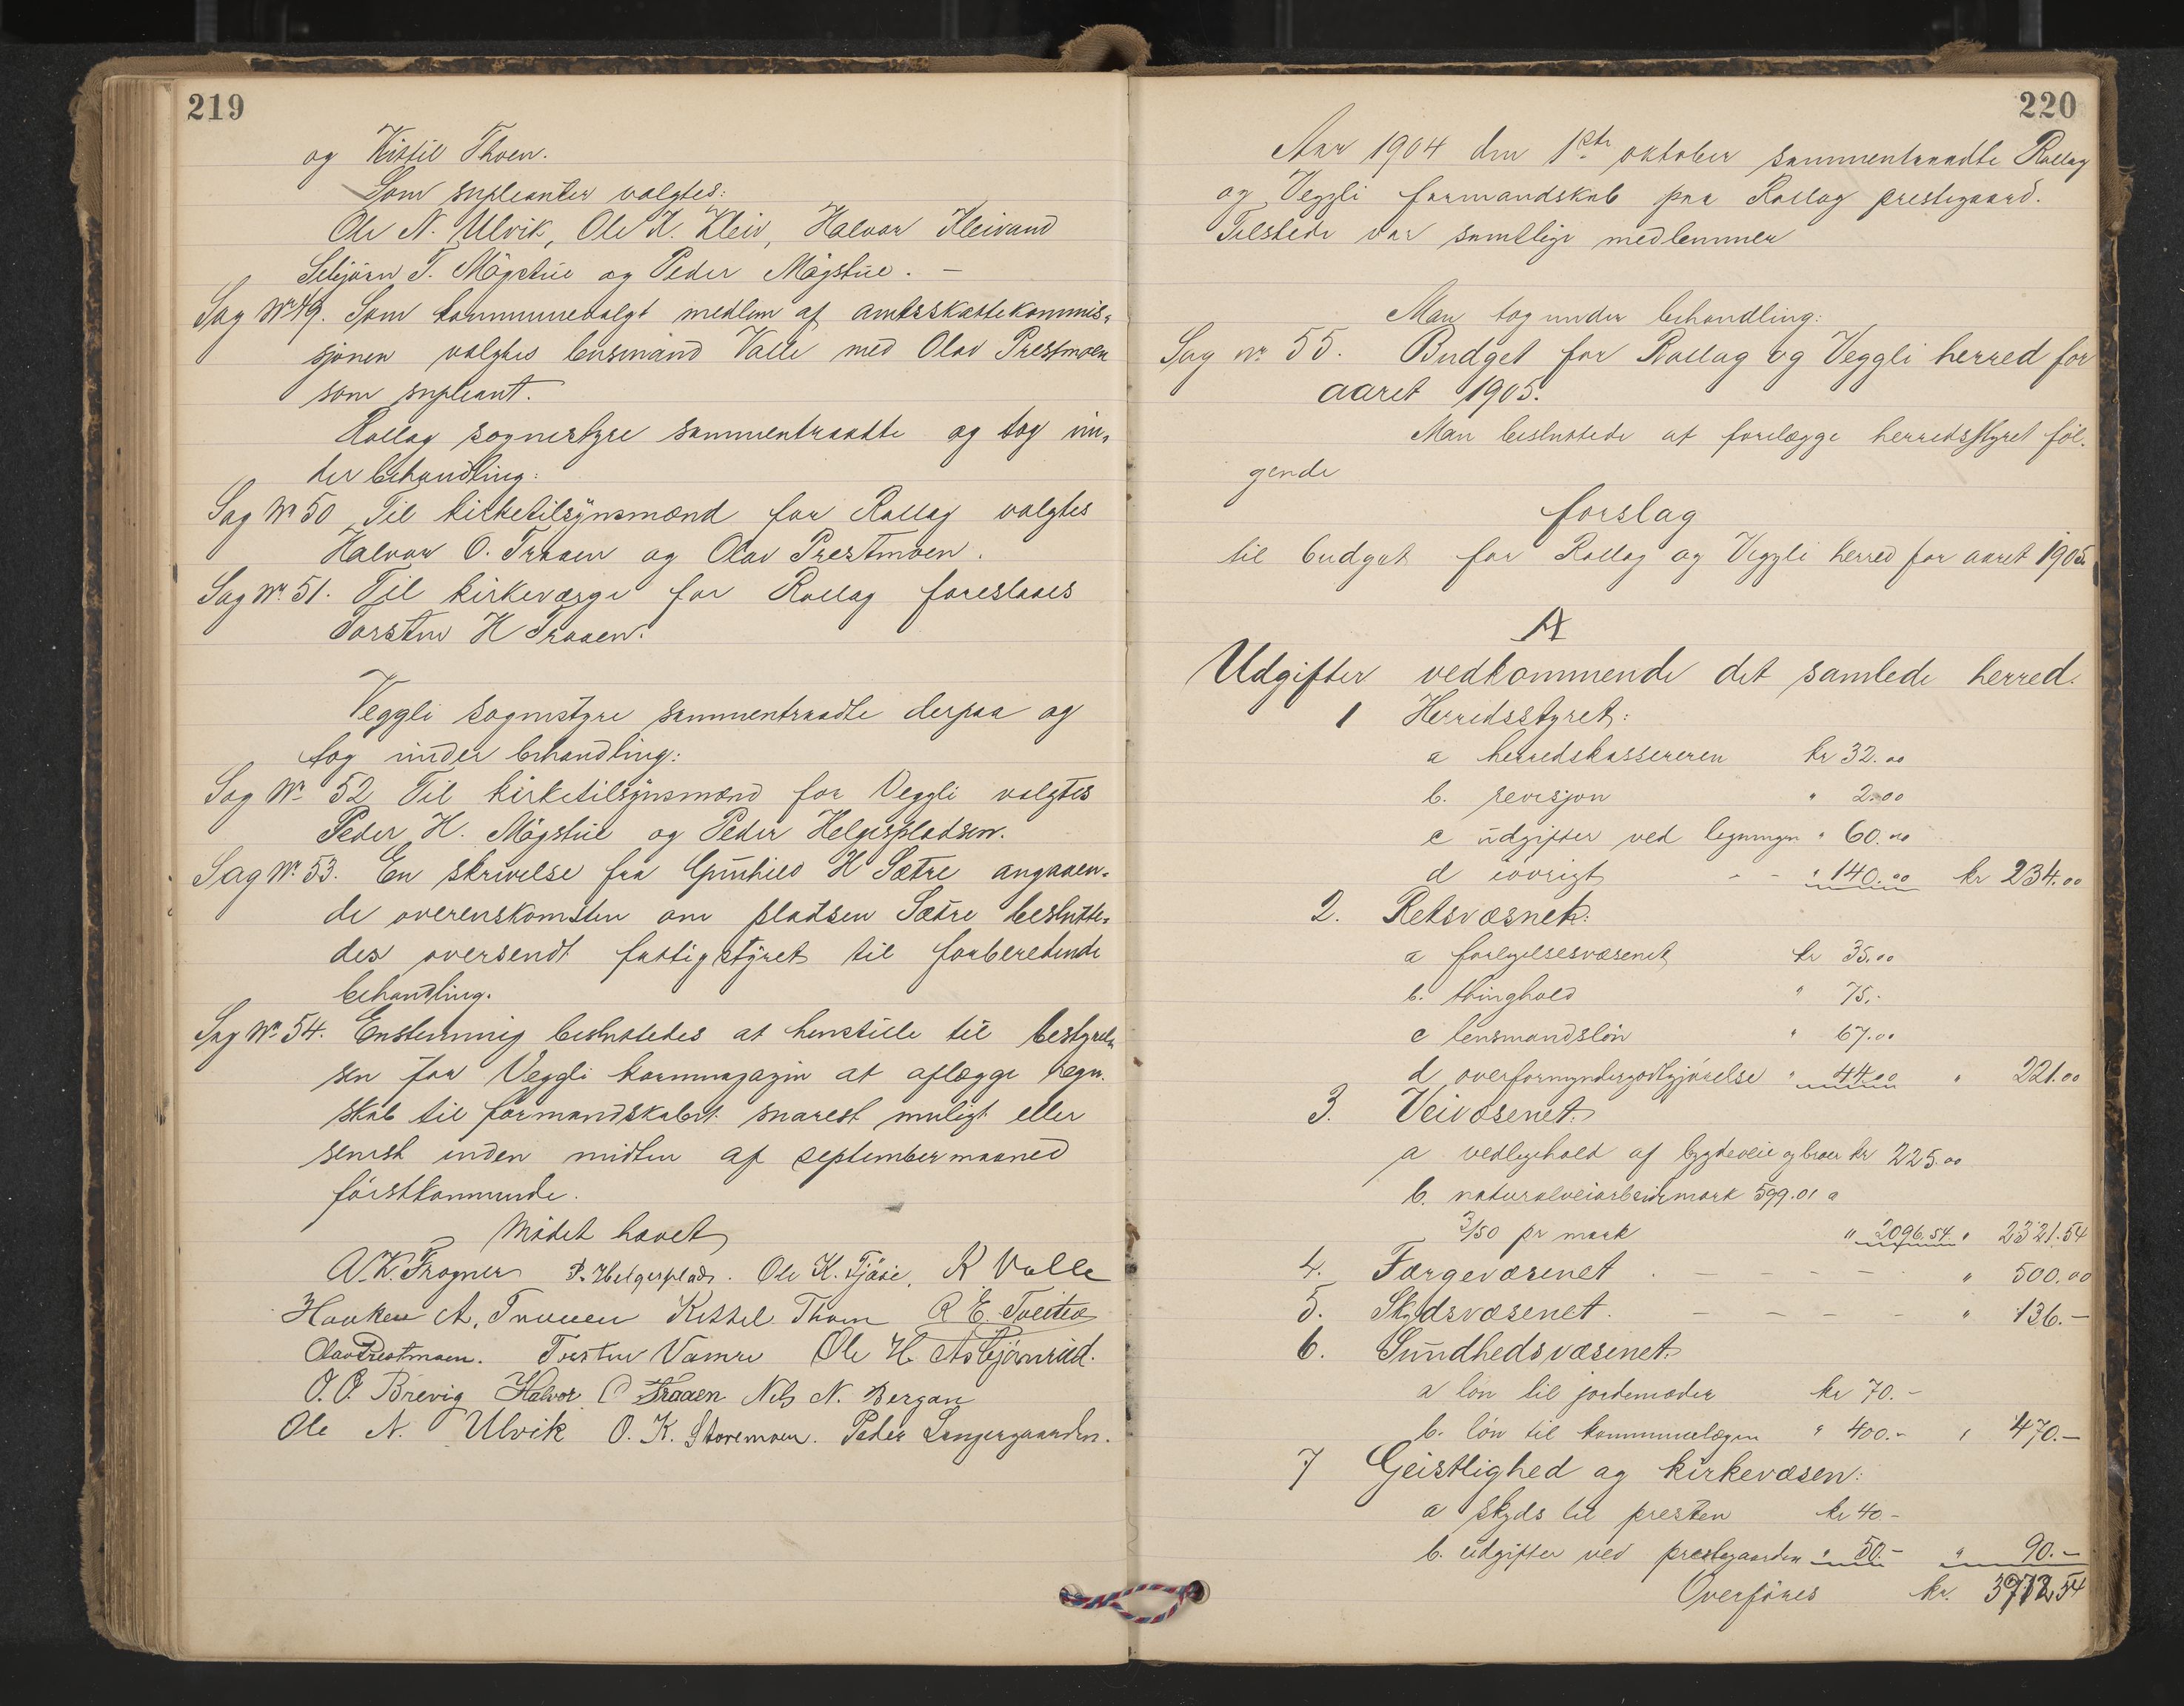 219
og Kittil Thoen.
Som supleanter valgtes:
Ole N. Ulvik, Ole K. Kleiv, Halvor Kleivand
T. Mögstue og Peder Mögstue. —
Sag Nr 49. Som kommunevalgt medlem af amtsskattekommis-
sjonen valgtes lensmand Valle med Olav Prestmoen
som supleant.
Rollag sognestyre sammentraadte og tog un-
der behandling:
Sag Nr 50 Til kirketilsynsmænd for Rollag valgtes
Halvor O. Traaen og Olav Prestmoen.
Sag Nr. 51. Til kirkeværge for Rollag foreslaaes
Torsten H Traaen.
Veggli sognestyre sammentraadte derpaa og
tog under behandling:
Sag Nr 52 Til kirketilsynsmænd for Veggli valgtes
Peder H. Mögstue og Peder Helgespladsen.
Sag Nr 53. En skrivelse fra Gunhild K Sætre angaaen-
de overenskomsten om pladsen Sætre beslutte-
des oversendt fattigstyret til forberedende
behandling.
Sag Nr 54. Enstemmig besluttedes at henstille til bestyrel-
sen for Veggli kornmagazin at aflægge regn-
skab til formandskabet snarest muligt eller
senest inden midten af september maaned
förstkommende.
Mödet hævet
A. K. Frogner P. Helgesplads. Ole K. Tjåse, K Valle
Haaken A. Traaen Kittil Thoen R E. Tveiten
Olav Prestmoen. Torsten Vamre Ole H. Asbjönrud.
O. O. Brevig Halvor O Traaen Nels N. Bergan
Ole N. Ulvik O. K. Storemoen. Peder Langergaarden.
220
Aar 1904 den 1ste oktober sammentraadte Rollag
og Veggli formandskab paa Rollag prestegaard.
Tilstede var samtlige medlemmer
Man tog under behandling:
Sag nr 55. Budget for Rollag og Veggli herred for
aaret 1905.
Man besluttede at forelægge herredsstyret föl-
gende
forslag
til budget for Rollag og Veggli herred for aaret 1905
A
Udgifter vedkommende det samlede herred.
1 Herredsstyret:
a herredskassereren kr 32.00
b. revisjon " 2.00
c udgifter ved ligningen " 60.00
d iövrigt - - " 140.00 kr 234.00
2. Retsvæsnet:
a forligelsesvæsenet kr 35.00
b. thinghold " 75.-
c lensmandslön " 67.00
d overformyndergodtgjörelse " 44.00 " 221.00
3. Veivæsenet:
a vedligehold af bygdeveie og broer kr 225.00
b. naturalveiarbeide mark 599.01 a
3/50 pr mark " 2096.54 " 2321.54
4. Færgevæsenet . — - — " 500.00
5. Skydsvæsenet. — — — - " 136.—
6. Sundhedsvæsenet:
a lön til jordemoder kr 70.-
b. lön til kommunelægen " 400.- " 470.—
7 Geistlighed og kirkevæsen:
a skyds til presten kr 40.-
b. udgifter ved prestegaarden " 50.- " 90.—
Overföres kr. 3972.54